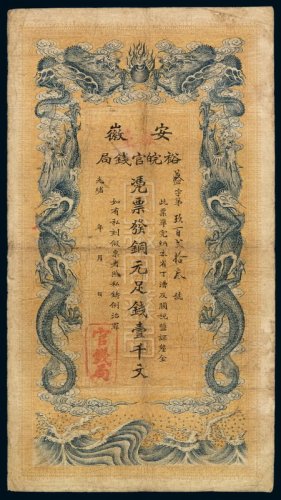 安徽
裕皖官錢局
字第玖百 拾叁號
此票準完納本省丁漕及關稅鹽課釐金
憑票發銅元足錢壹千文
如有私刻假票者照私鑄例治罪
光緒 年 月 日
官錢局